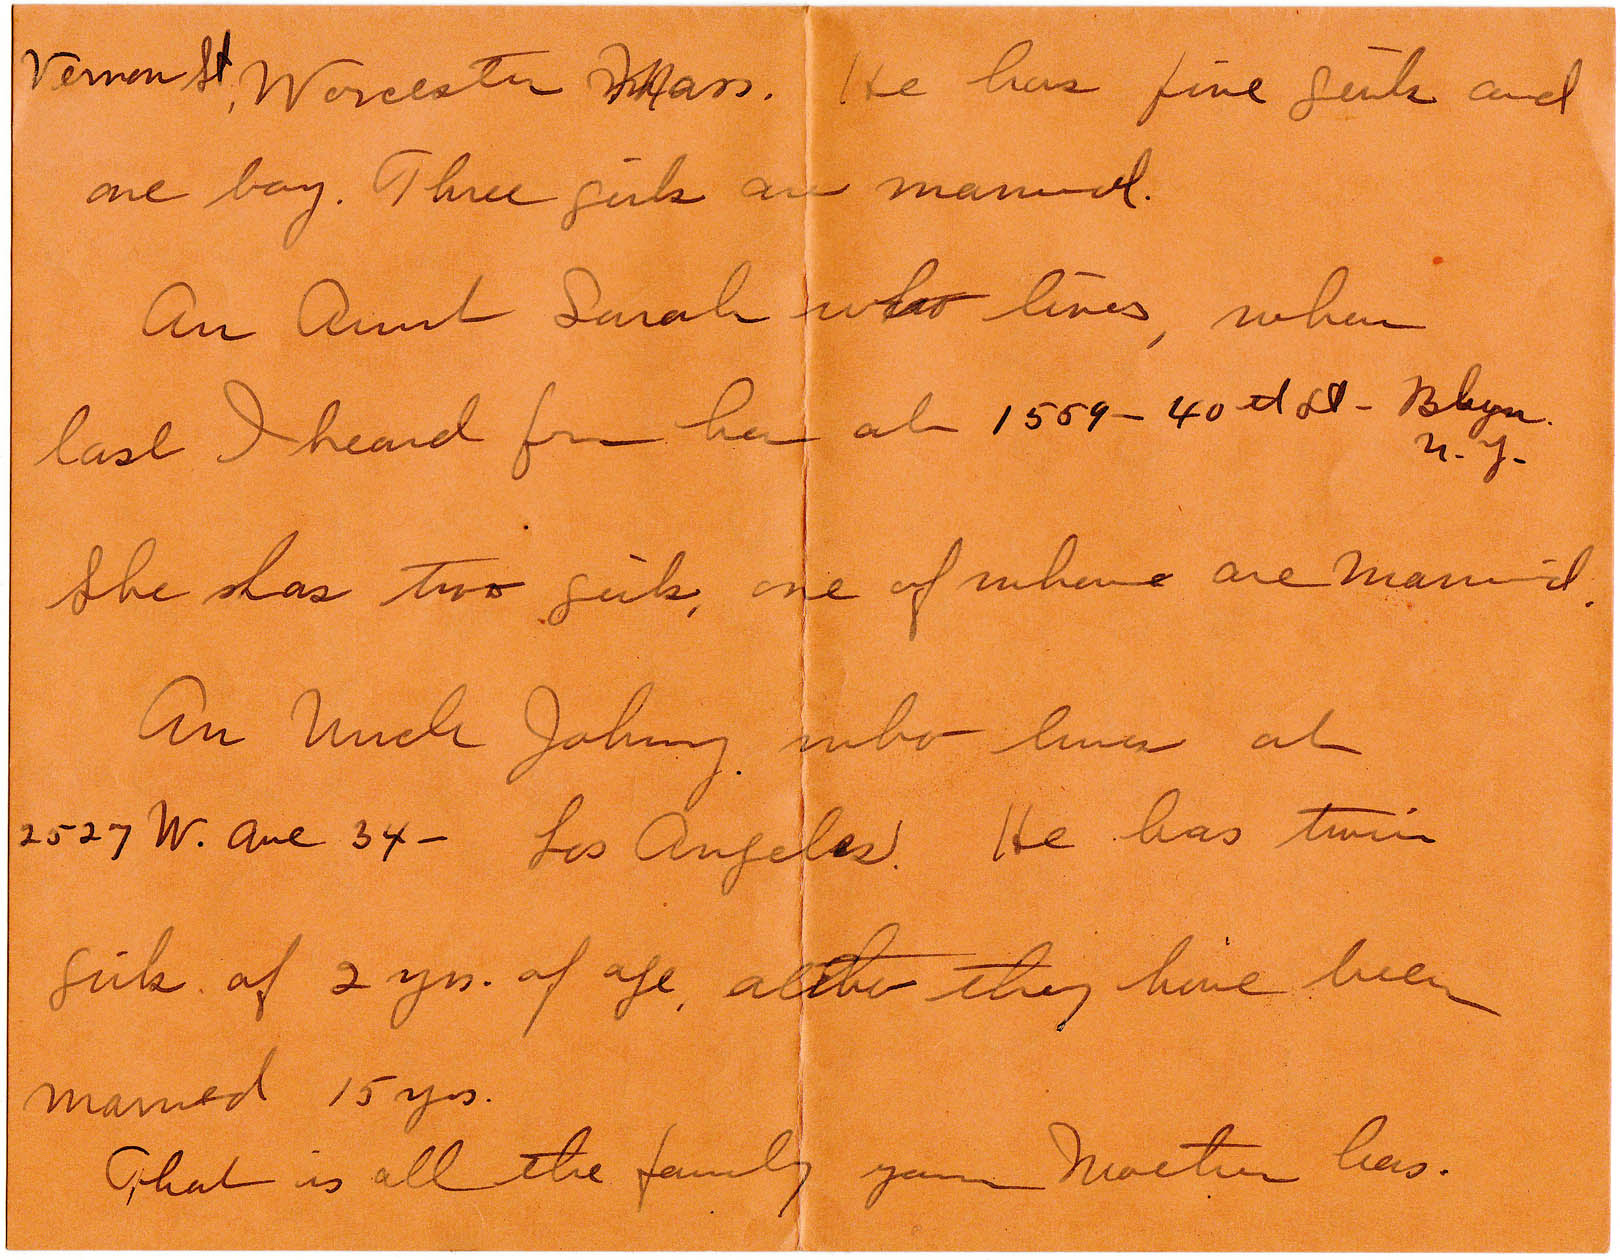 Vernon St, Worcester Mass. He has five girls and
one boy. Three girls are married.
An Aunt Sarah who lives, when
last I heard from her at 1559 - 40th St - Bklyn.
N.Y.
She has two girls, one of whom are married.
An Uncle Johnny. who lives at
2527 W. Ave 34 - Los Angeles. He has twin
girls of 2 yrs. of age, altho they have been
married 15 yrs.
That is all the family your Mother has.